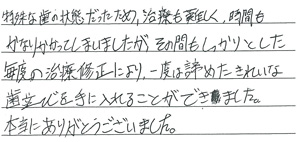 特殊な歯の状態だったため、治療も難しく、時間も
かなりかかってしまいましたが、その間もしっかりとした
毎度の治療修正により、一度は諦めたきれいな
歯並びを手に入れることができました。
本当にありがとうございました。